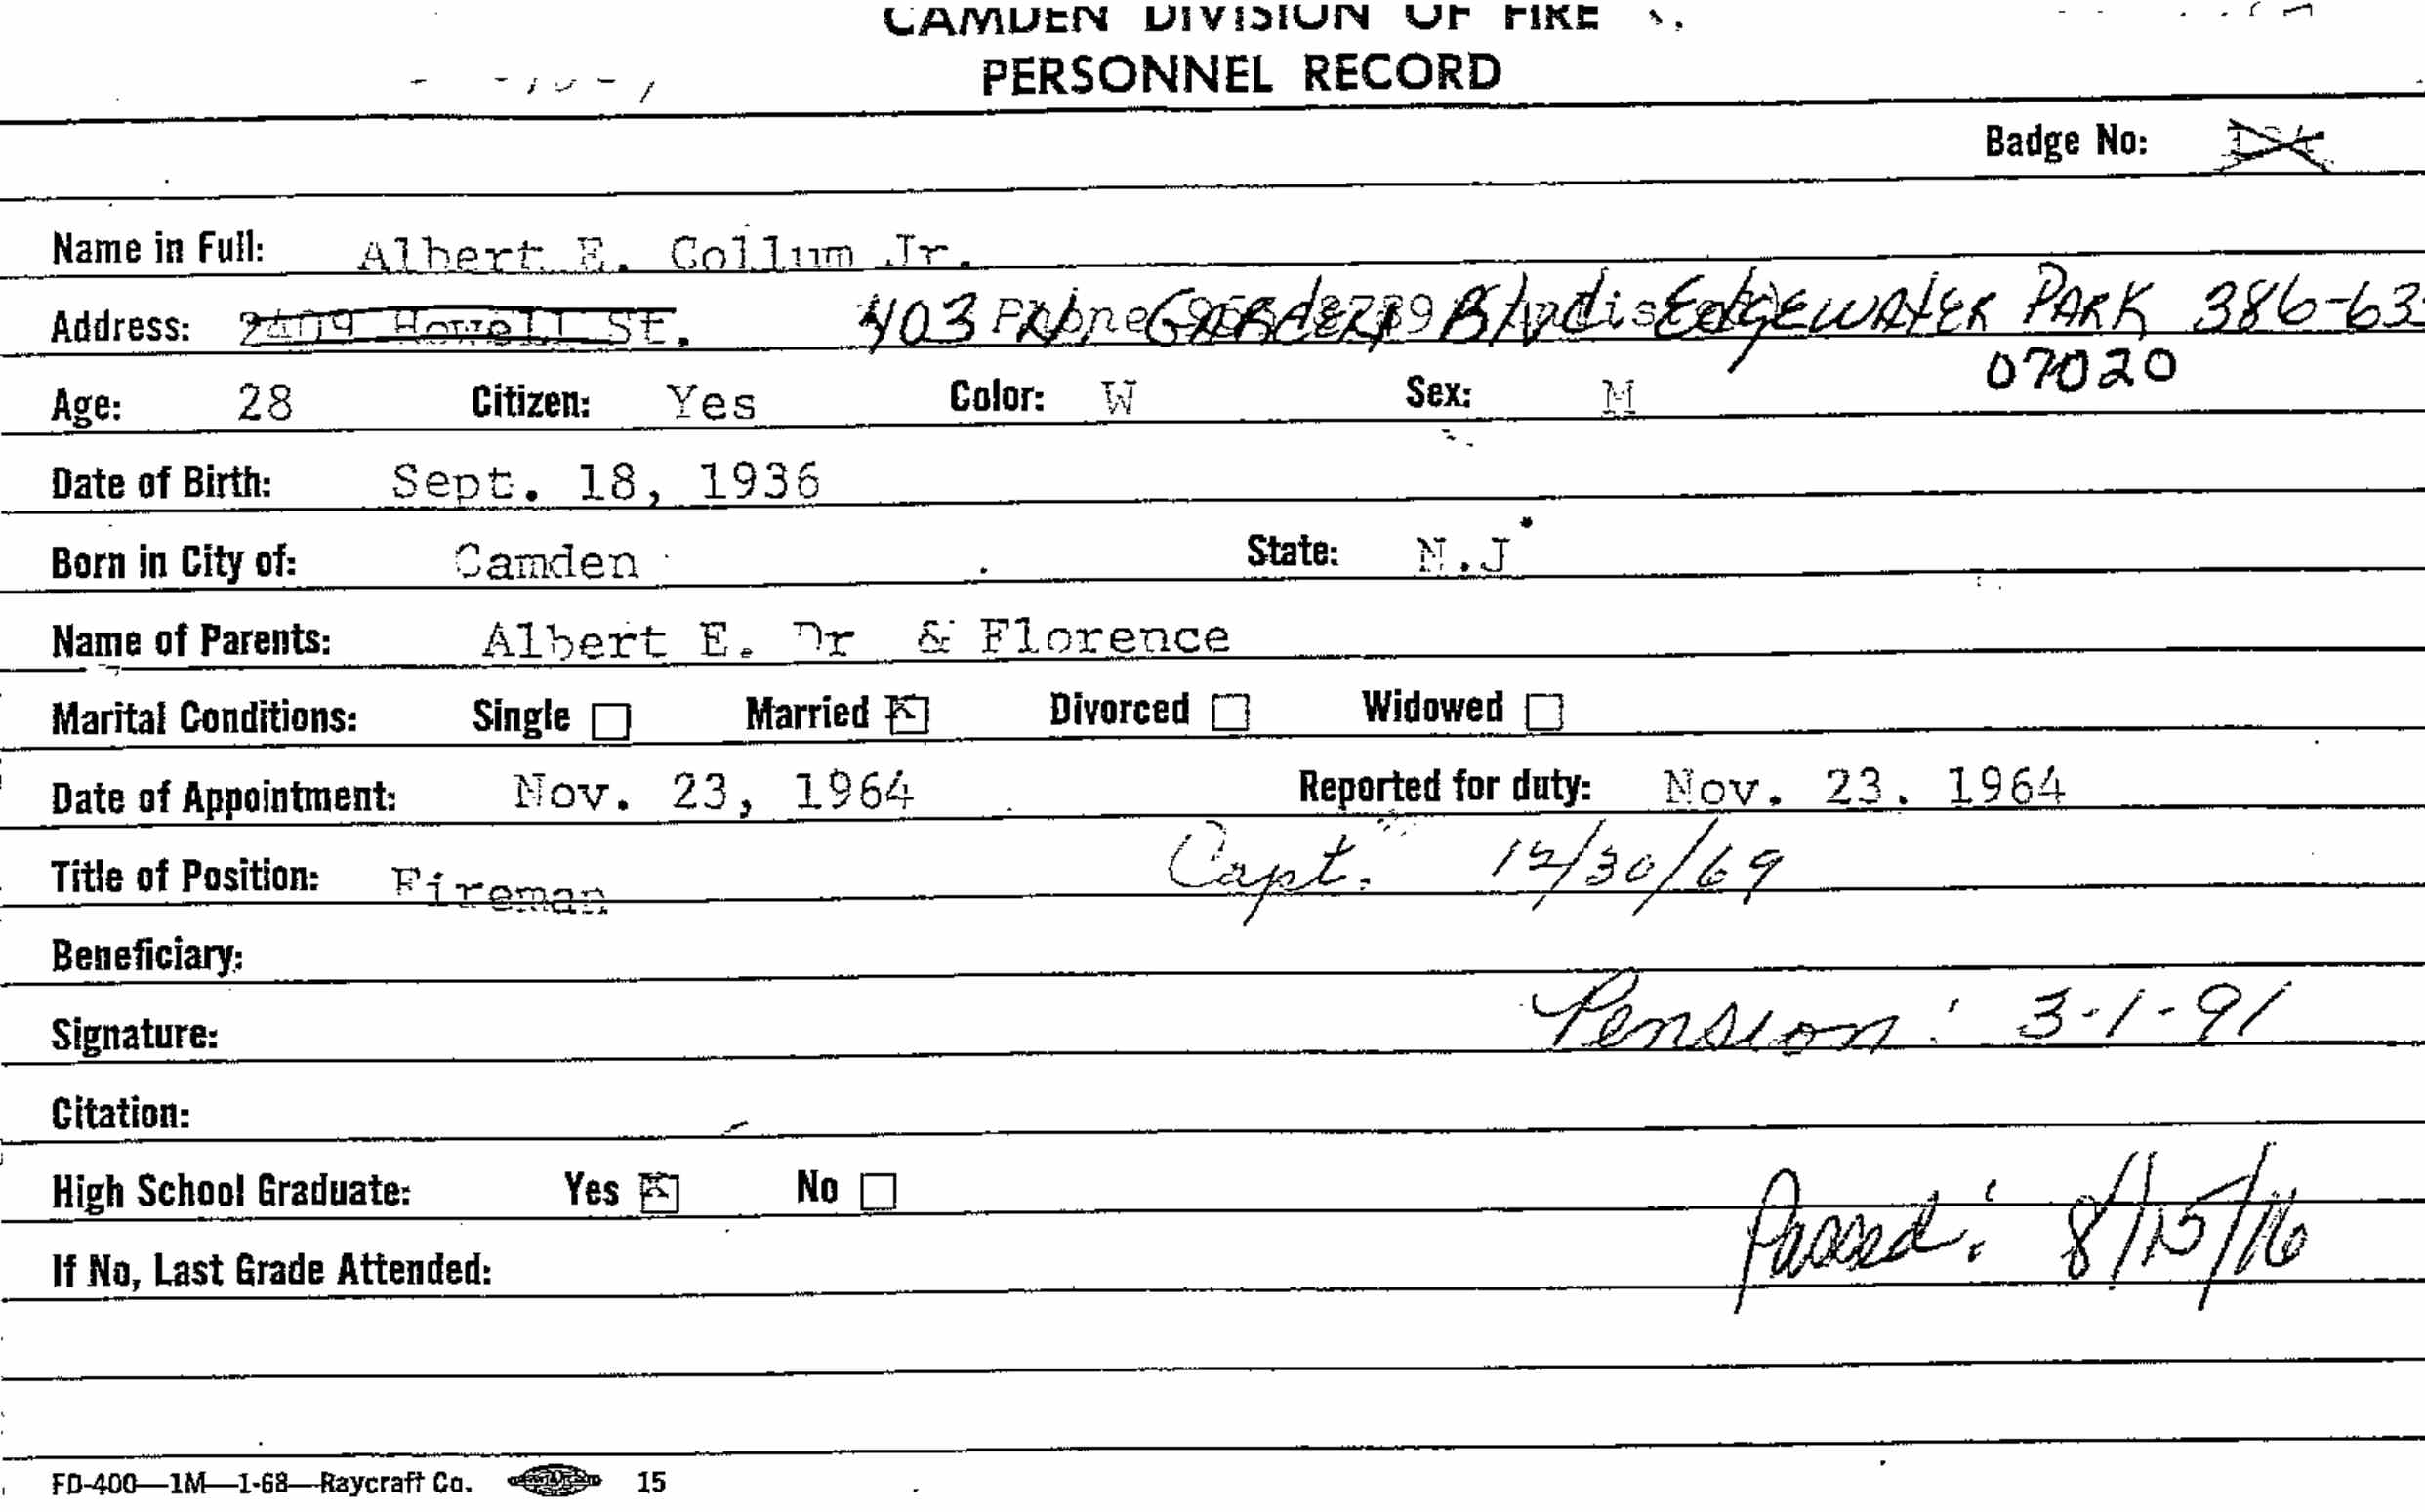 CAMDEN DIVISION OF FIRE
PERSONNEL RECORD
Badge No:
Name in Full: Albert E. Collum Jr.
Address: 2409 Howell St. 403 N. GARDEN Blvd EdgEWATER PARK 386-63
07020
Age: 28 Citizen: Yes Color: W Sex: M
Date of Birth: Sept. 18, 1936
Born in City of: Camden State: N.J.
Name of Parents: Albert E. & Florence
Marital Conditions: Single Married Divorced Widowed
Date of Appointment: Nov. 23, 1964 Reported for duty: Nov. 23. 1964
Title of Position: Fireman Capt. 12/30/69
Beneficiary:
Signature: Pension: 3-1-91
Citation:
High School Graduate: Yes No
Passed: 8/15/16
If No, Last Grade Attended:
FD-400—1M—1-68—Raycraft Co. 15